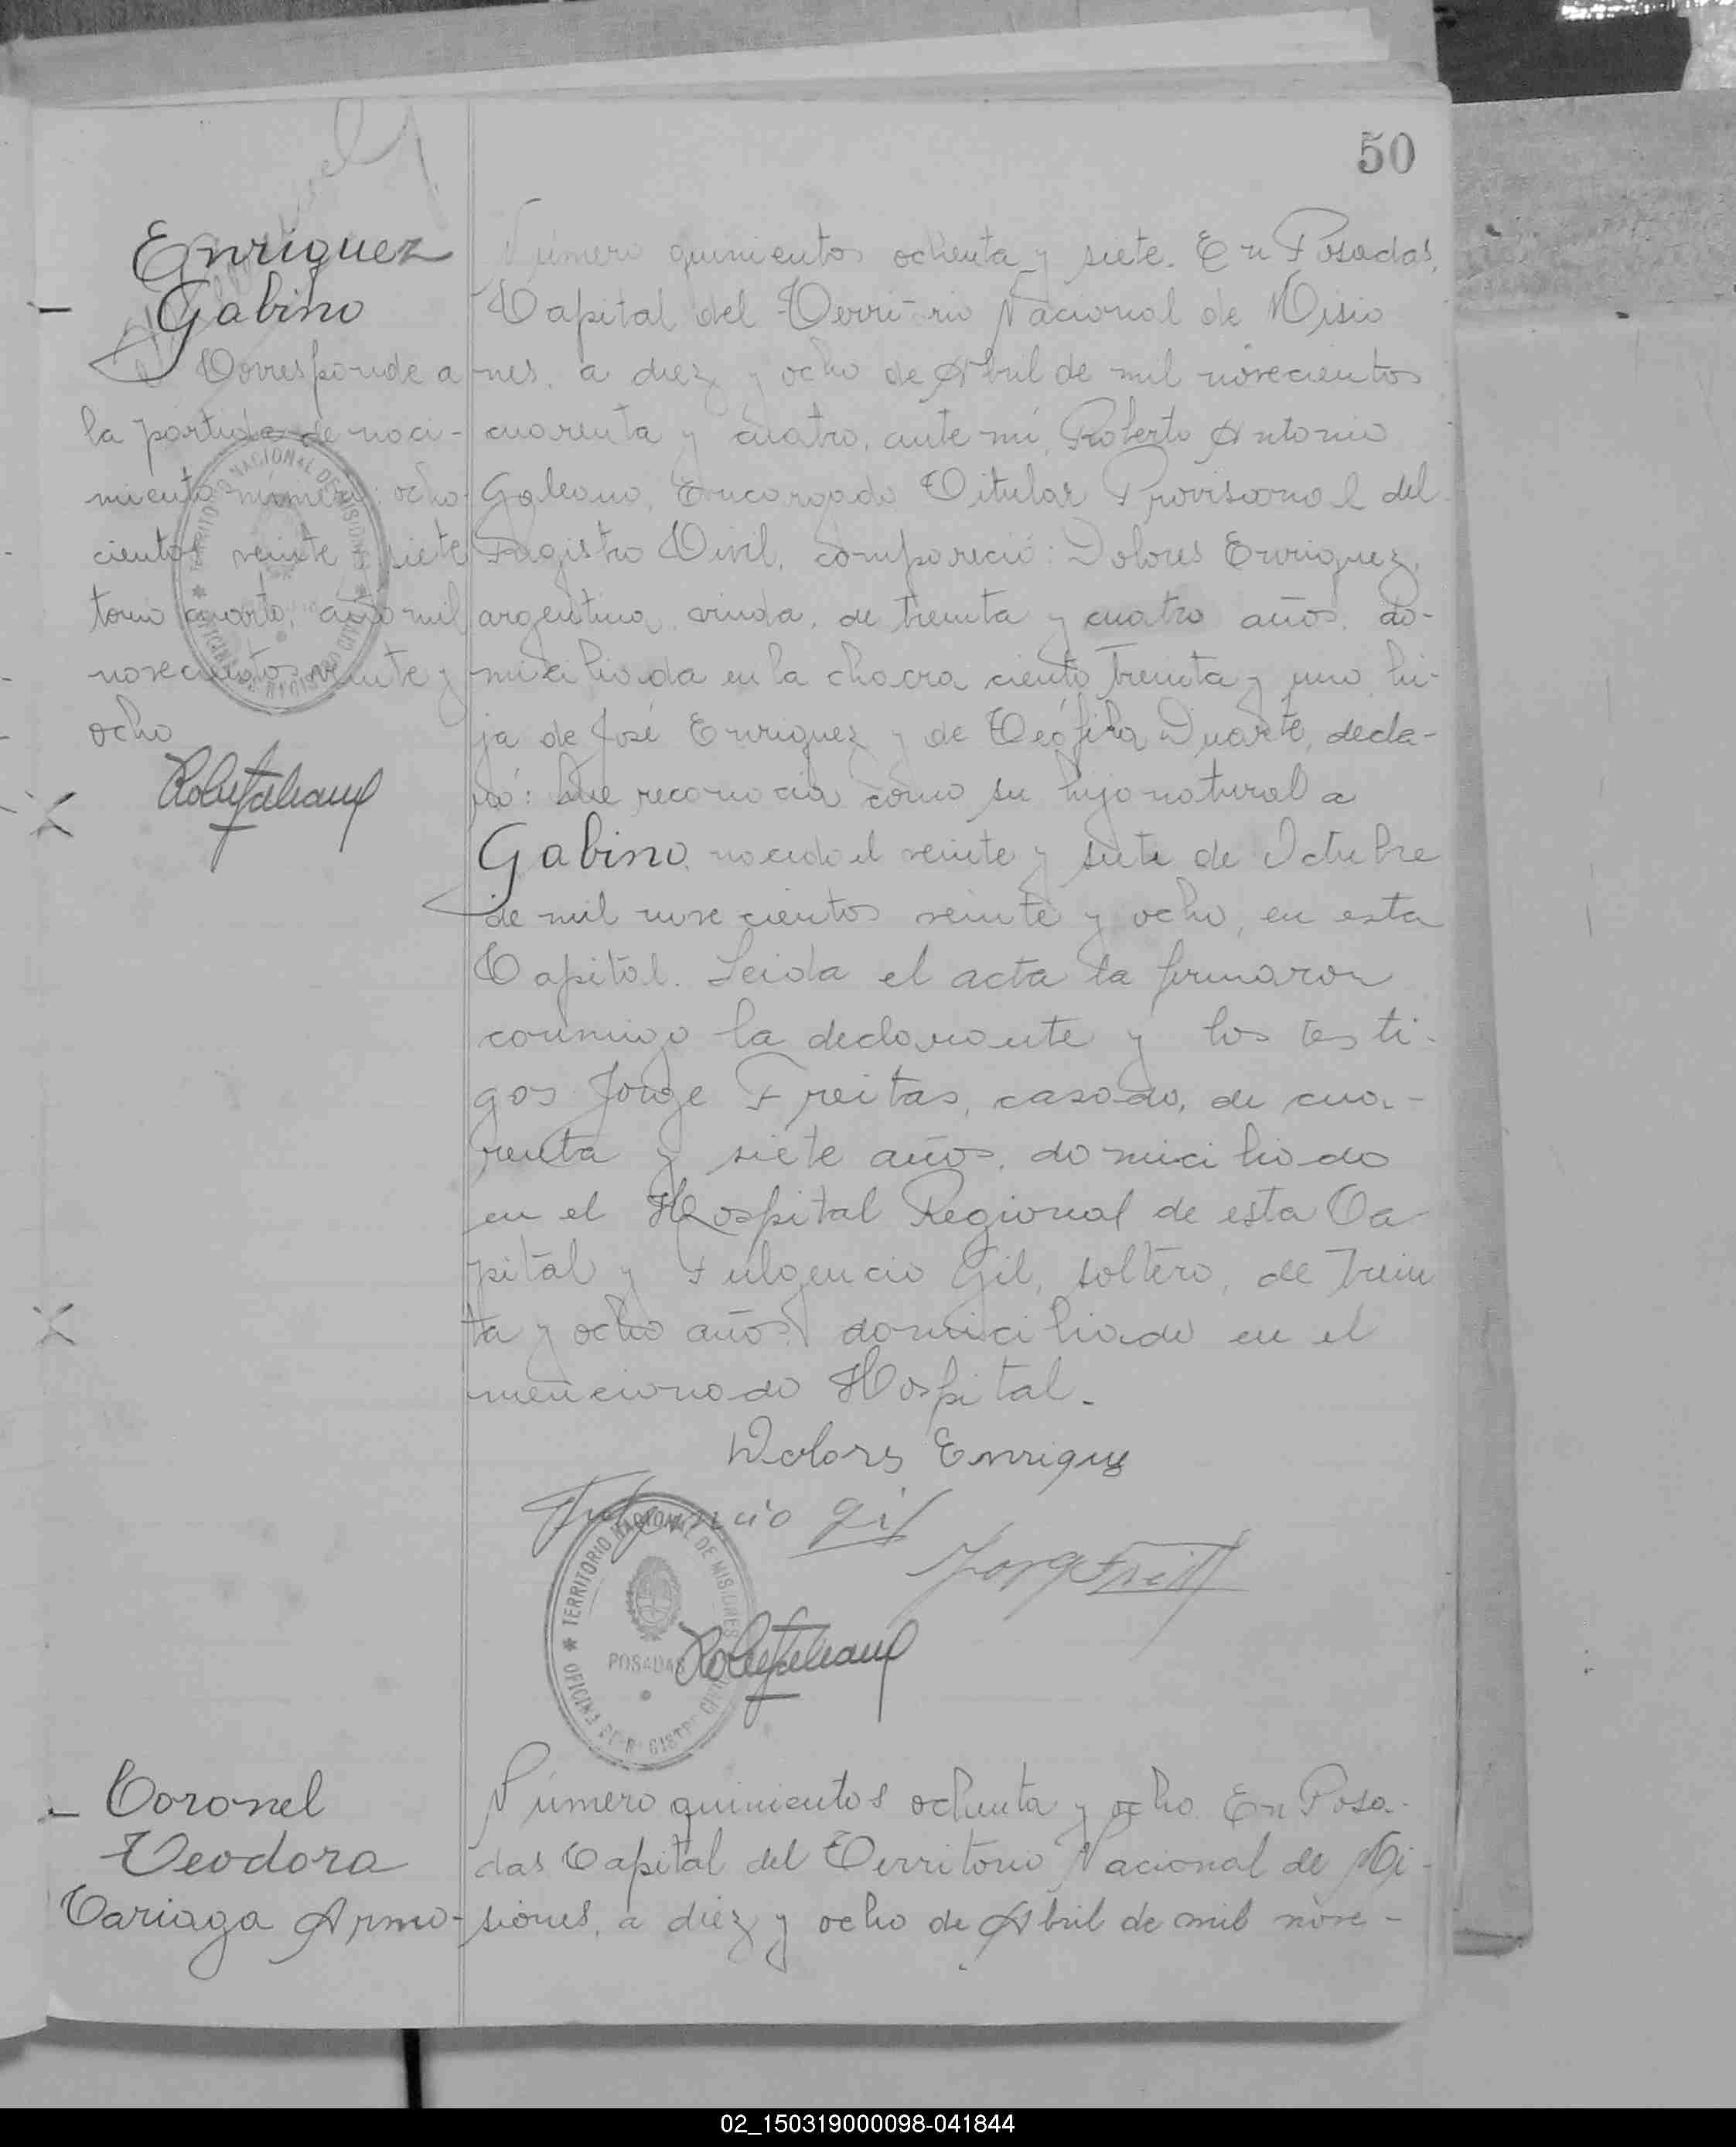 50
Enriquez
Gabino
Corresponde a
la partida de naci-
miento número: ocho-
cientos veinte y siete
tomo cuarto, año mil
novecientos veinte y
ocho
Número quinientos ochenta y siete. En Posadas,
Capital del Territorio Nacional de Misio
nes, a diez y ocho de Abril de mil novecientos
cuarenta y cuatro, ante mí, Roberto Antonio
Galeano, Encargado Titular Provisional del
Registro Civil, compareció: Dolores Enriquez,
argentina, viuda, de treinta y cuatro años, do-
miciliada en la chacra ciento treinta y uno, hi-
ja de José Enriquez y de Teófila Duarte, decla-
ró: Que reconocia como su hijo natural a
Gabino, nacido el veinte y siete de Octubre
de mil novecientos veinte y ocho, en esta
Capital. Leida el acta la firmaron
conmigo la declarante y los testi-
gos Jorge Freitas, casado, de cua-
renta y siete años, domiciliado
en el Hospital Regional de esta Ca-
pital y Fulgencio Gil, soltero, de trein
ta y ocho años, domiciliado en el
mencionado Hospital.-
Dolores Enriquez
Fulgencio Gil
Jorge Freitas
TERRITORIO NACIONAL DE MISIONES
POSADAS
OFICINA DE REGISTRO CIVIL
Coronel
Teodora
Cariaga Armo-
Número quinientos ochenta y ocho. En Posa-
das Capital del Territorio Nacional de Mi-
siones, a diez y ocho de Abril de mil nove-
02_150319000098-041844